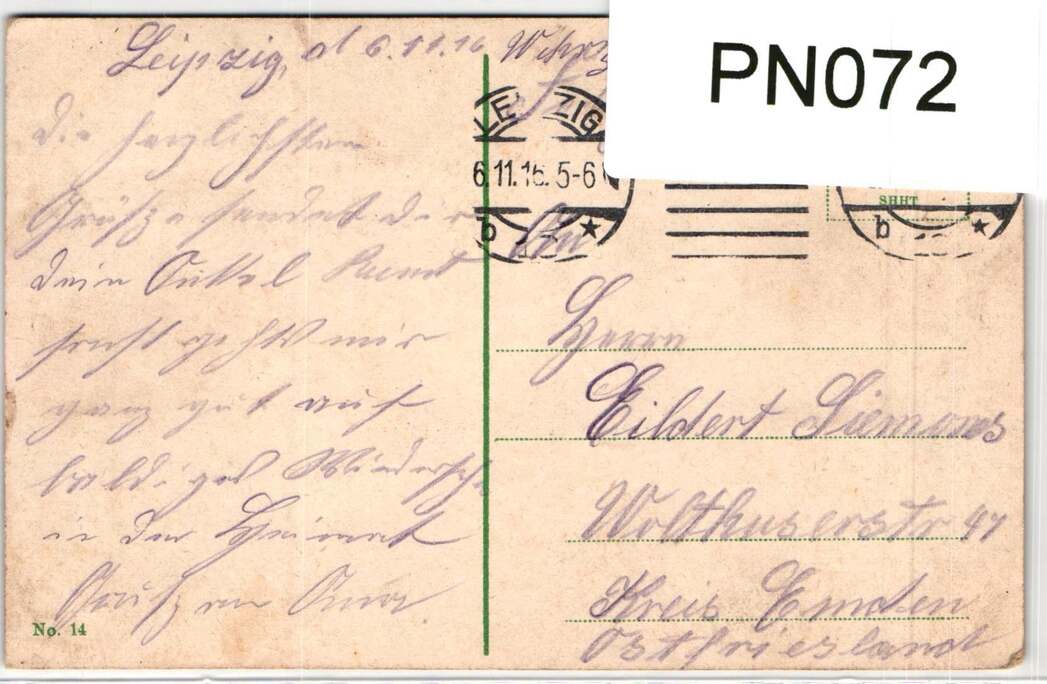 Leipzig, d 6.11.16
die herzlichsten
Grüße sendet der
dein Onkel
sonst geht es mir
ganz gut auf
baldiges Wiedersehn
in der Heimat
Gruß an
No. 14
PN072
LEIPZIG
6.11.16. 5-6
b
b
An
Herrn
Eildert Siemons
Wolthuserstr 47
Kreis Emden
Ostfriesland